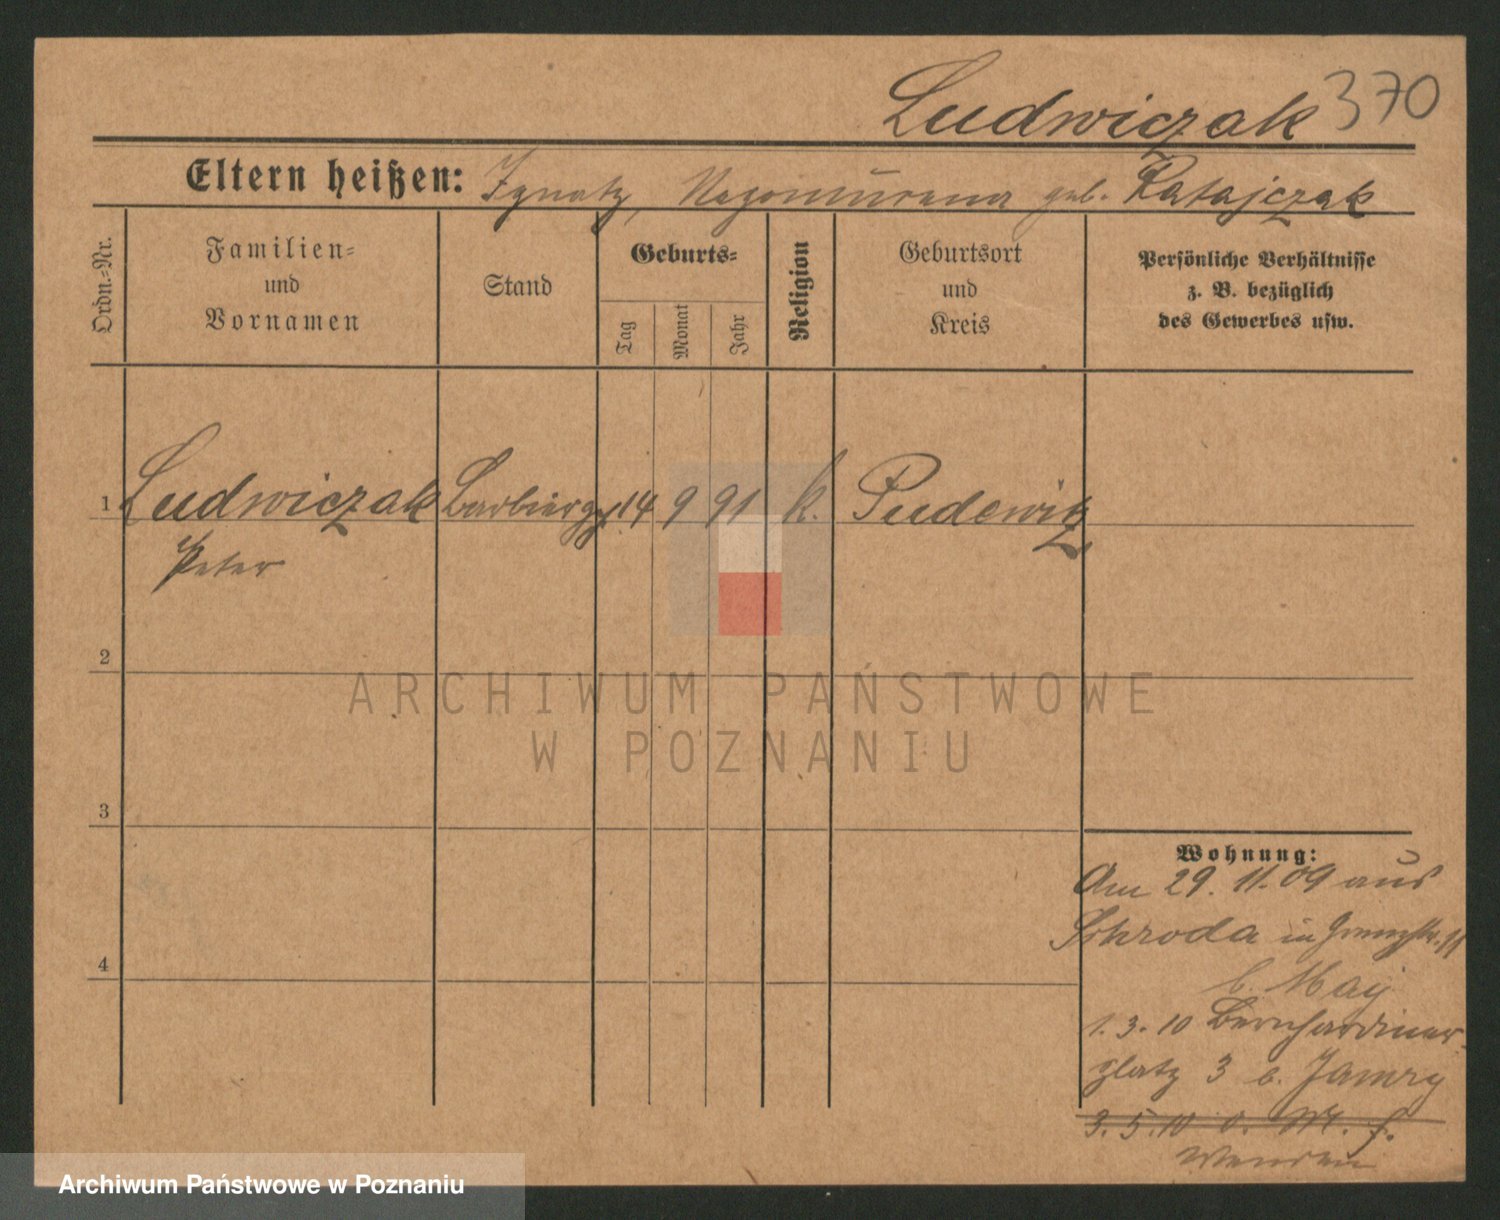 Ludwiczak 370
Eltern heißen: Ignatz, geb. Ratajczak
Ordn.-Nr.
Familien-
und
Vornamen
Stand
Geburts-
Tag
Monat
Jahr
Religion
Geburtsort
und
Kreis
Persönliche Verhältnisse
z. B. bezüglich
des Gewerbes usw.
1 Ludwiczak Barbierg. 14 9 91 k. Pudewitz
Peter
2
ARCHIWUM PAŃSTWOWE
W POZNANIU
3
4
Wohnung:
Am 29. 11. 09 aus
Schroda in Grenzstr. 11
b. May
1. 3. 10 Bernhardiner-
platz 3 b.
3. 5. 10
Archiwum Państwowe w Poznaniu